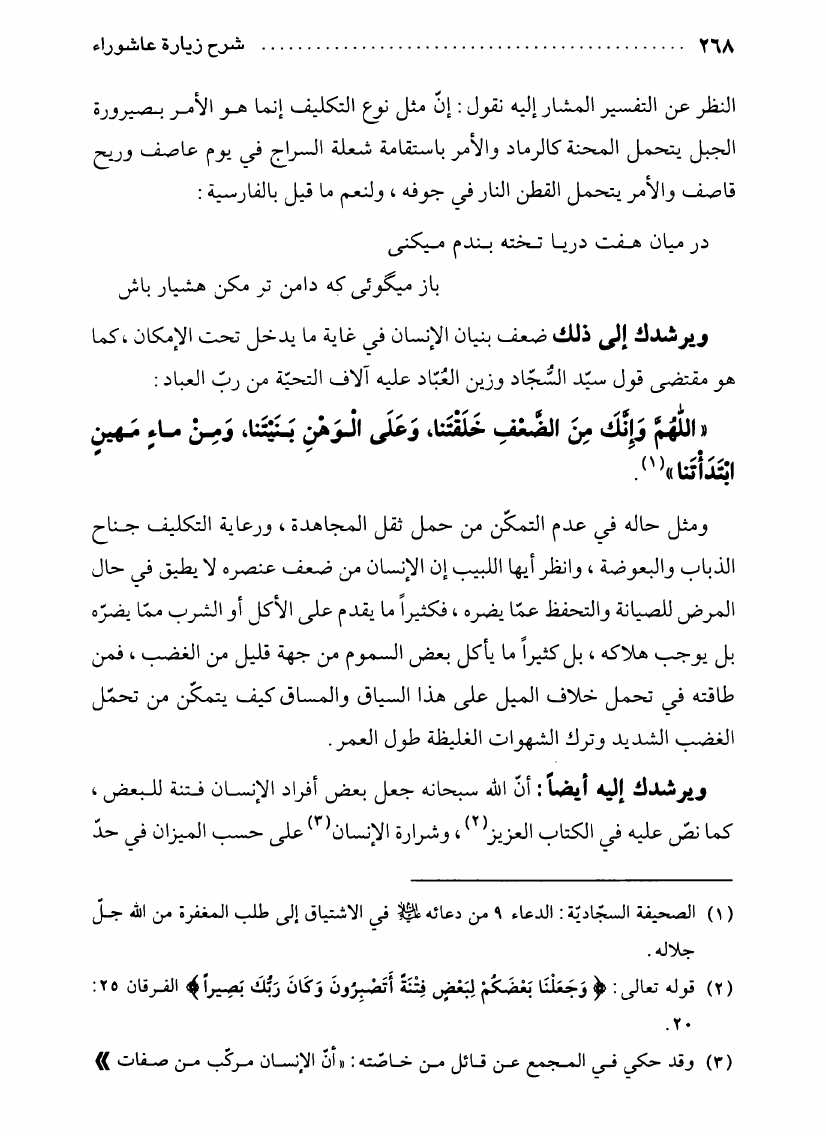 ٢٦٨ ........................................ شرح زيارة عاشوراء
النظر عن التفسير المشار إليه نقول : إنّ مثل نوع التكليف إنما هو الأمر بصيرورة
الجبل يتحمل المحنة كالرماد والأمر باستقامة شعلة السراج في يوم عاصف وريح
قاصف والأمر يتحمل القطن النار في جوفه ، ولنعم ما قيل بالفارسية :
در ميان هفت دريا تخته بندم ميكنى
باز ميگوئى كه دامن تر مكن هشيار باش
ويرشدك إلى ذلك ضعف بنيان الإنسان في غاية ما يدخل تحت الإمكان ، كما
هو مقتضى قول سيّد السُّجّاد وزين العُبّاد عليه آلاف التحيّة من ربّ العباد :
«اللّٰهُمَّ وَإِنَّكَ مِنَ الضَّعْفِ خَلَقْتَنا، وَعَلَى الْوَهْنِ بَنَيْتَنا، وَمِنْ ماءٍ مَهينٍ
ابْتَدَأْتَنا»(١).
ومثل حاله في عدم التمكّن من حمل ثقل المجاهدة ، ورعاية التكليف جناح
الذباب والبعوضة ، وانظر أيها اللبيب إن الإنسان من ضعف عنصره لا يطيق في حال
المرض للصيانة والتحفظ عمّا يضره ، فكثيراً ما يقدم على الأكل أو الشرب ممّا يضرّه
بل يوجب هلاكه ، بل كثيراً ما يأكل بعض السموم من جهة قليل من الغضب ، فمن
طاقته في تحمل خلاف الميل على هذا السياق والمساق كيف يتمكّن من تحمّل
الغضب الشديد وترك الشهوات الغليظة طول العمر .
ويرشدك إليه أيضاً : أنّ الله سبحانه جعل بعض أفراد الإنسان فتنة للبعض ،
كما نصّ عليه في الكتاب العزيز(٢) ، وشرارة الإنسان(٣) على حسب الميزان في حدّ
(١) الصحيفة السجّاديّة : الدعاء ٩ من دعائه عليه السلام في الاشتياق إلى طلب المغفرة من الله جلّ
جلاله .
(٢) قوله تعالى : ﴿ وَجَعَلْنَا بَعْضَكُمْ لِبَعْضٍ فِتْنَةً أَتَصْبِرُونَ وَكَانَ رَبُّكَ بَصِيراً ﴾ الفرقان ٢٥ :
٢٠ .
(٣) وقد حكي في المجمع عن قائل من خاصّته : «أنّ الإنسان مركّب من صفات ⟫